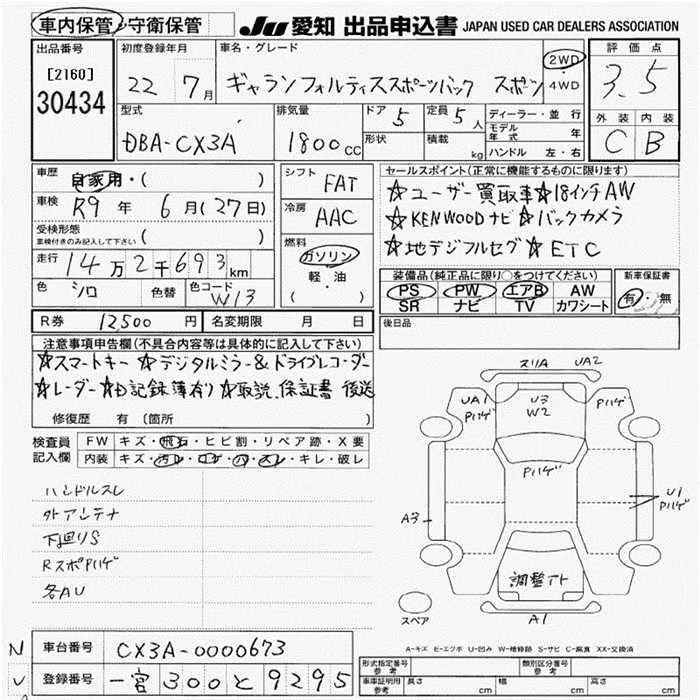 車内保管・守衛保管 JU 愛知 出品申込書 JAPAN USED CAR DEALERS ASSOCIATION
出品番号 [2160] 30434
初度登録年月 22 7月
車名・グレード ギャランフォルティススポーツバック スポーツ
2WD・4WD
評価点 3.5
外装 C 内装 B
型式 DBA-CX3A
排気量 1800cc
ドア 5 定員 5人
形状 積載 kg
ディーラー・並行
モデル年式 年
ハンドル 左・右
車歴 自家用・( )
車検 R9年 6月(27日)
受検形態 車検付きのみ記入して下さい ( )
走行 14万2千693km
色 シロ 色替 色コード W13
シフト FAT
冷房 AAC
燃料 ガソリン 軽・油 ( )
セールスポイント(正常に機能するものに限ります)
☆ユーザー買取車☆18インチAW
☆KENWOODナビ☆バックカメラ
☆地デジフルセグ☆ETC
装備品(純正品に限り○をつけてください)
PS PW エアB AW
SR ナビ TV カワシート
新車保証書 有・無
R券 12,500円 名変期限 月 日
後日品
注意事項申告欄(不具合内容等は具体的に記入して下さい)
☆スマートキー ☆デジタルミラー&ドライブレコーダー
☆レーダー☆D記録簿有り☆取説.保証書 後送
修復歴 有(箇所 )
検査員記入欄 FW キズ・飛石・ヒビ割・リペア跡・X要
内装 キズ・汚レ・コゲ・穴・スレ・キレ・破レ
ハンドルスレ
外アンテナ
下廻りS
RスポPハゲ
各AU
スリA UA2
UA1 Pハゲ U3 W2 Pハゲ
Pハゲ
A3 U1 Pハゲ
調整アト
スペア A1
A-キズ E-エクボ U-凹み W-補修跡 S-サビ C-腐食 XX-交換済
N 車台番号 CX3A-0000673
U 登録番号 一宮 300 と 9295
形式指定番号 参考 類別区分番号 参考
車車証明用 参考 長さ cm 幅 cm 高さ cm